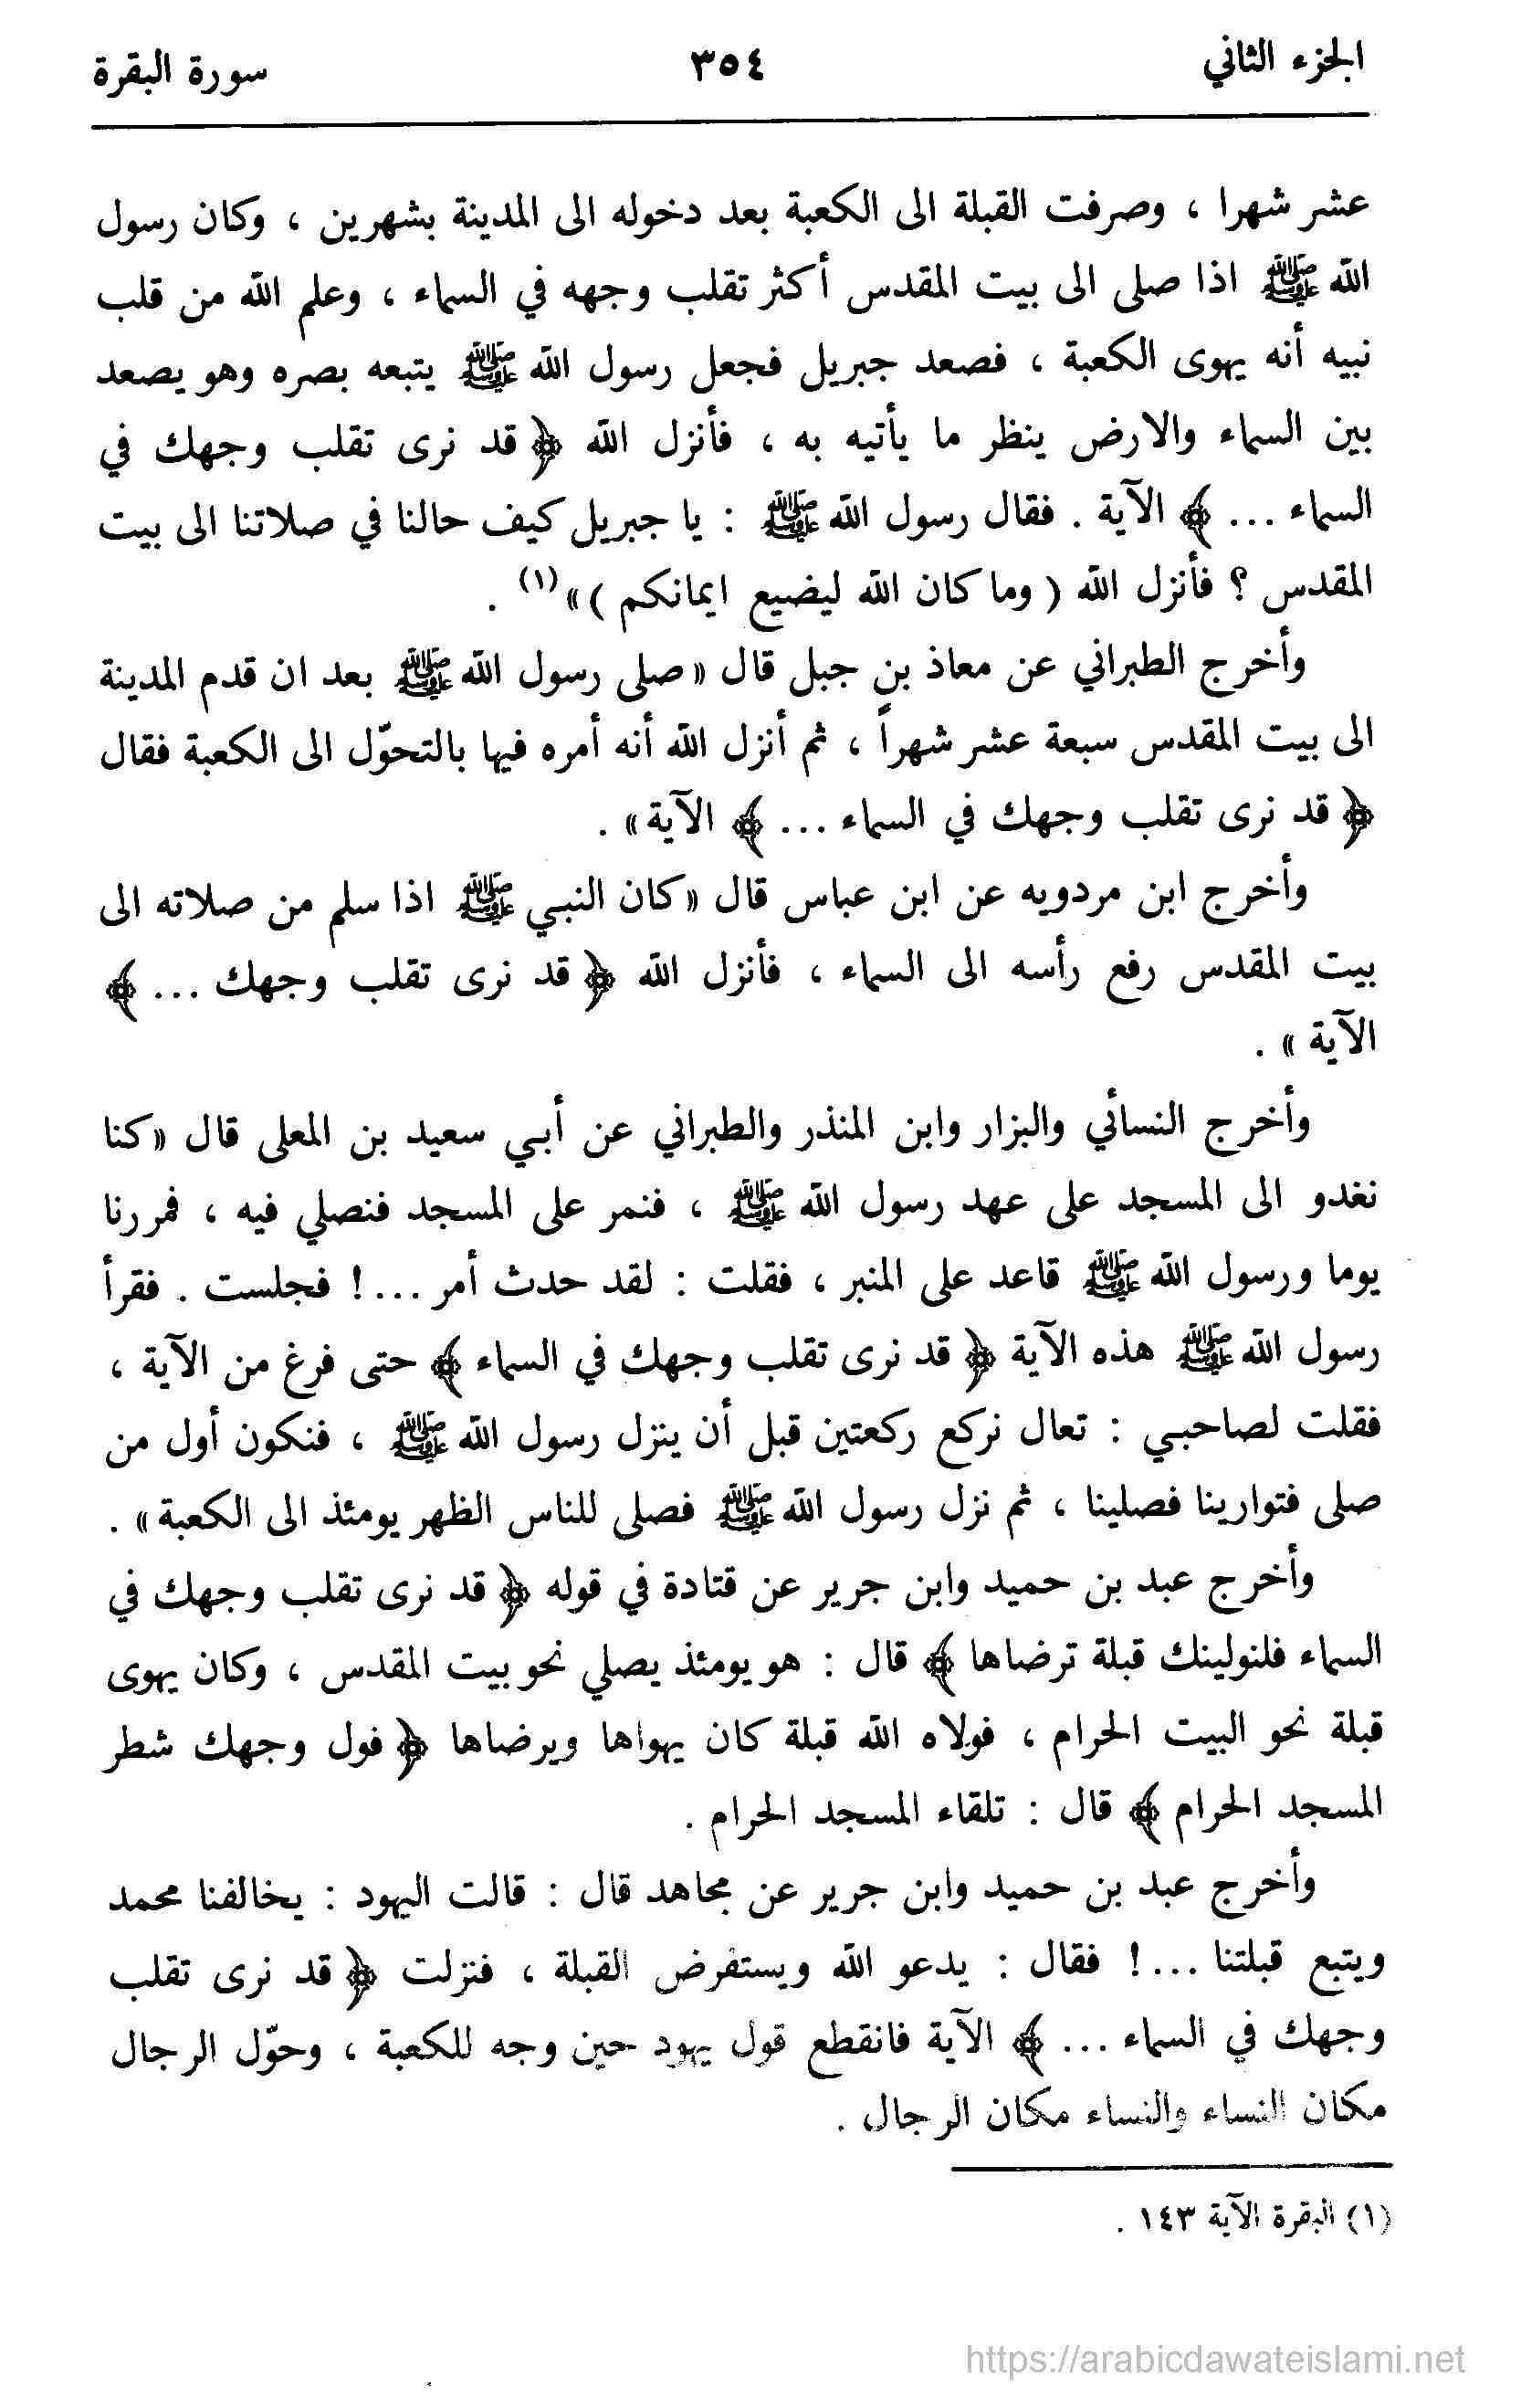 الجزء الثاني ٣٥٤ سورة البقرة
عشر شهرا ، وصرفت القبلة الى الكعبة بعد دخوله الى المدينة بشهرين ، وكان رسول
الله ﷺ اذا صلى الى بيت المقدس أكثر تقلب وجهه في السماء ، وعلم الله من قلب
نبيه أنه يهوى الكعبة ، فصعد جبريل فجعل رسول الله ﷺ يتبعه بصره وهو يصعد
بين السماء والارض ينظر ما يأتيه به ، فأنزل الله ﴿ قد نرى تقلب وجهك في
السماء ... ﴾ الآية . فقال رسول الله ﷺ : يا جبريل كيف حالنا في صلاتنا الى بيت
المقدس ؟ فأنزل الله ( وما كان الله ليضيع ايمانكم )»(١) .
وأخرج الطبراني عن معاذ بن جبل قال «صلى رسول الله ﷺ بعد ان قدم المدينة
الى بيت المقدس سبعة عشر شهراً ، ثم أنزل الله أنه أمره فيها بالتحوّل الى الكعبة فقال
﴿ قد نرى تقلب وجهك في السماء ... ﴾ الآية» .
وأخرج ابن مردويه عن ابن عباس قال «كان النبي ﷺ اذا سلم من صلاته الى
بيت المقدس رفع رأسه الى السماء ، فأنزل الله ﴿ قد نرى تقلب وجهك ... ﴾
الآية » .
وأخرج النسائي والبزار وابن المنذر والطبراني عن أبي سعيد بن المعلى قال «كنا
نغدو الى المسجد على عهد رسول الله ﷺ ، فنمر على المسجد فنصلي فيه ، فمررنا
يوما ورسول الله ﷺ قاعد على المنبر ، فقلت : لقد حدث أمر ...! فجلست . فقرأ
رسول الله ﷺ هذه الآية ﴿ قد نرى تقلب وجهك في السماء ﴾ حتى فرغ من الآية ،
فقلت لصاحبي : تعال نركع ركعتين قبل أن ينزل رسول الله ﷺ ، فنكون أول من
صلى فتوارينا فصلينا ، ثم نزل رسول الله ﷺ فصلى للناس الظهر يومئذ الى الكعبة» .
وأخرج عبد بن حميد وابن جرير عن قتادة في قوله ﴿ قد نرى تقلب وجهك في
السماء فلنولينك قبلة ترضاها ﴾ قال : هو يومئذ يصلي نحو بيت المقدس ، وكان يهوى
قبلة نحو البيت الحرام ، فولاه الله قبلة كان يهواها ويرضاها ﴿ فول وجهك شطر
المسجد الحرام ﴾ قال : تلقاء المسجد الحرام .
وأخرج عبد بن حميد وابن جرير عن مجاهد قال : قالت اليهود : يخالفنا محمد
ويتبع قبلتنا ...! فقال : يدعو الله ويستفرض القبلة ، فنزلت ﴿ قد نرى تقلب
وجهك في السماء ... ﴾ الآية فانقطع قول يهود حين وجه للكعبة ، وحوّل الرجال
مكان النساء والنساء مكان الرجال .
(١) البقرة الآية ١٤٣ .
https://arabicdawateislami.net